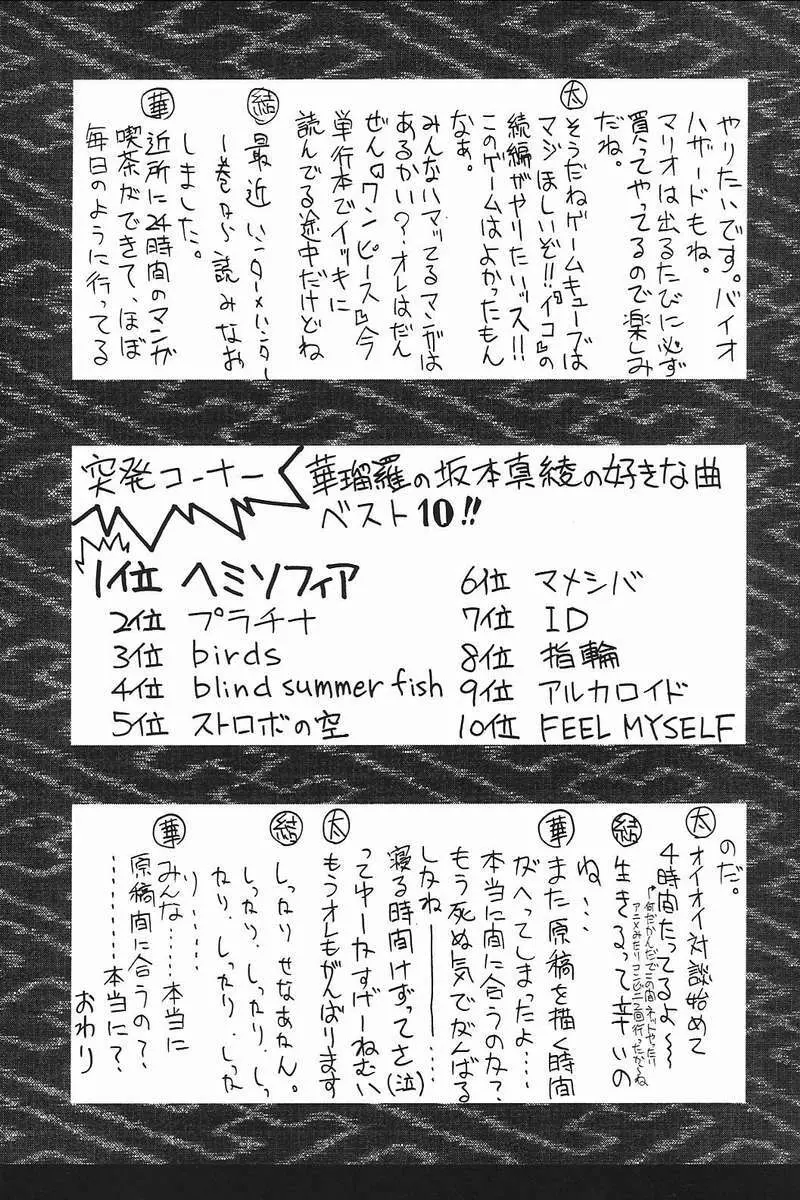 やりたいです。バイオ
ハザードもね。
マリオは出るたびに必ず
買ってやってるので楽しみ
だね。
太 そうだねゲームキューブでは
マジほしいぞ!!『イコ』の
続編がやりたいッス!!
このゲームはよかったもん
なぁ。
みんなハマッてるマンガは
あるかい?オレはだん
ぜん『ワンピース』今
単行本でイッキに
読んでる途中だけどね
結 最近ハンター×ハンター
1巻から読みなお
しました。
華 近所に24時間のマンガ
喫茶ができて、ほぼ
毎日のように行ってる
突発コーナー
華瑠羅の坂本真綾の好きな曲
ベスト10!!
1位 ヘミソフィア
2位 プラチナ
3位 birds
4位 blind summer fish
5位 ストロボの空
6位 マメシバ
7位 ID
8位 指輪
9位 アルカロイド
10位 FEEL MYSELF
のだ。
太 オイオイ対談始めて
4時間たってるよ〜
何だかんだでこの間ネットやったり
アニメみたりコンビニ2回行ったからね
結 生きるって辛いの
ね…
華 また原稿を描く時間
がへってしまったよ…
本当に間に合うのか?
もう死ぬ気でがんばる
しかねーーー…
寝る時間けずってさ(泣)
ってゆーかすげーねむい
太 もうオレもがんばります
結 しっかりせなあかん。
しっかり、しっかり、しっ
かり、しったり、しった
り…
華 みんな……本当に
原稿間に合うの?
………本当に?
おわり